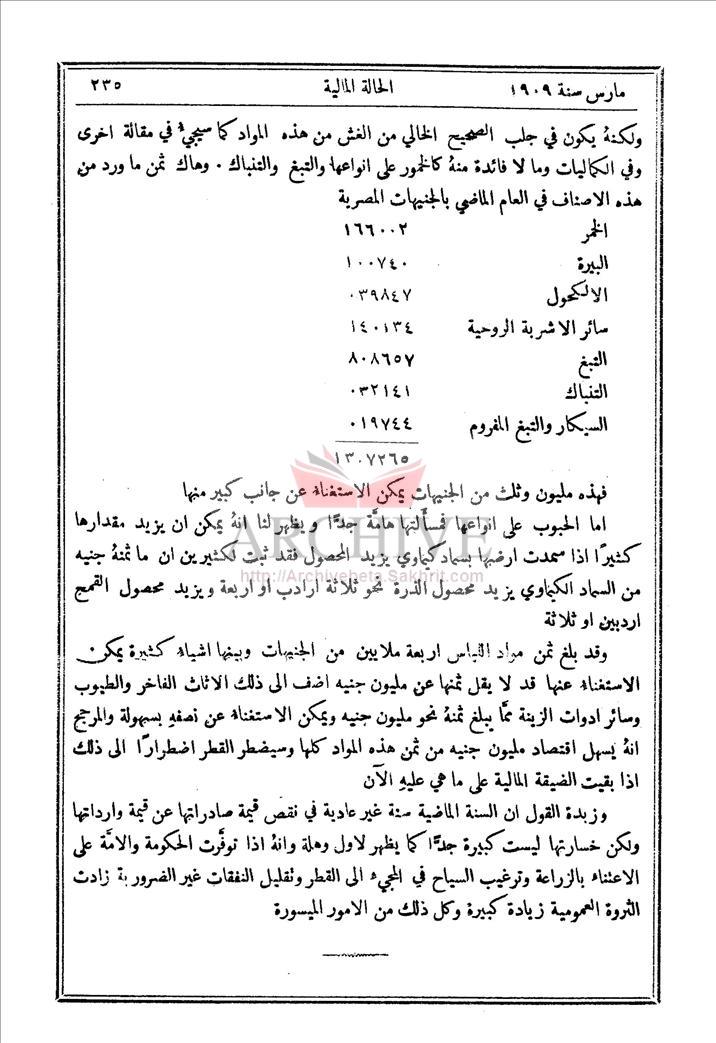 مارس سنة ١٩٠٩ الحالة المالية ٢٣٥
ولكنهُ يكون في جلب الصحيح الخالي من الغش من هذه المواد كما سيجيءُ في مقالة اخرى
وفي الكماليات وما لا فائدة منهُ كالخمور على انواعها والتبغ والتنباك . وهاك ثمن ما ورد من
هذه الاصناف في العام الماضي بالجنيهات المصرية
الخمر ١٦٦٠٠٢
البيرة ١٠٠٧٤٠
الالكحول ٠٣٩٨٤٧
سائر الاشربة الروحية ١٤٠١٣٤
التبغ ٨٠٨٦٥٧
التنباك ٠٣٢١٤١
السيكار والتبغ المفروم ٠١٩٧٤٤
١٣٠٧٢٦٥
فهذه مليون وثلث من الجنيهات يمكن الاستغناءُ عن جانب كبير منها
اما الحبوب على انواعها فمسأَلتها هامَّة جدًّا ويظهر لنا انهُ يمكن ان يزيد مقدارها
ARCHIVE
كثيرًا اذا سمدت ارضها بسماد كيماوي يزيد المحصول فقد ثبت لكثيرين ان ما ثمنهُ جنيه
http://Archivebeta.Sakhrit.com
من السماد الكيماوي يزيد محصول الذرة نحو ثلاثة ارادب او اربعة ويزيد محصول القمح
اردبين او ثلاثة
وقد بلغ ثمن مواد اللباس اربعة ملايين من الجنيهات وبينها اشياءُ كثيرة يمكن
الاستغناءُ عنها قد لا يقل ثمنها عن مليون جنيه اضف الى ذلك الاثاث الفاخر والطيوب
وسائر ادوات الزينة ممَّا يبلغ ثمنهُ نحو مليون جنيه ويمكن الاستغناءُ عن نصفهِ بسهولة والمرجح
انهُ يسهل اقتصاد مليون جنيه من ثمن هذه المواد كلها وسيضطر القطر اضطرارًا الى ذلك
اذا بقيت الضيقة المالية على ما هي عليهِ الآن
وزبدة القول ان السنة الماضية سنة غير عادية في نقص قيمة صادراتها عن قيمة وارداتها
ولكن خسارتها ليست كبيرة جدًّا كما يظهر لاول وهلة وانهُ اذا توفَّرت الحكومة والامَّة على
الاعتناء بالزراعة وترغيب السياح في المجيءِ الى القطر وتقليل النفقات غير الضرورية زادت
الثروة العمومية زيادة كبيرة وكل ذلك من الامور الميسورة